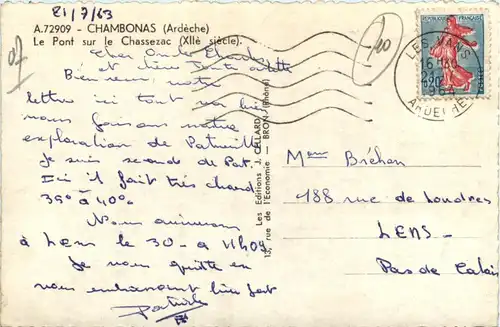 21/7/63
07
A.72909 - CHAMBONAS (Ardèche)
Le Pont sur le Chassezac (XIIè siècle).
Cher Oncle Charles
et chère Tante
Bien reçu votre
lettre ici tout va bien
nous faisons notre
exploration de
Je suis seconde de Pat.
Ici il fait très chaud
35° à 40°.
Nous arriverons
à Lens le 30 - à 11h09
Je vous quitte en
vous embrassant bien fort
Patricia
Les Editions J. CELLARD
13, rue de l'Economie - BRON (Rhône)
10
RÉPUBLIQUE FRANÇAISE
LES VANS
16 H
ARDECHE
Mme Bréhon
188 rue de Londres
LENS-
Pas de Calais